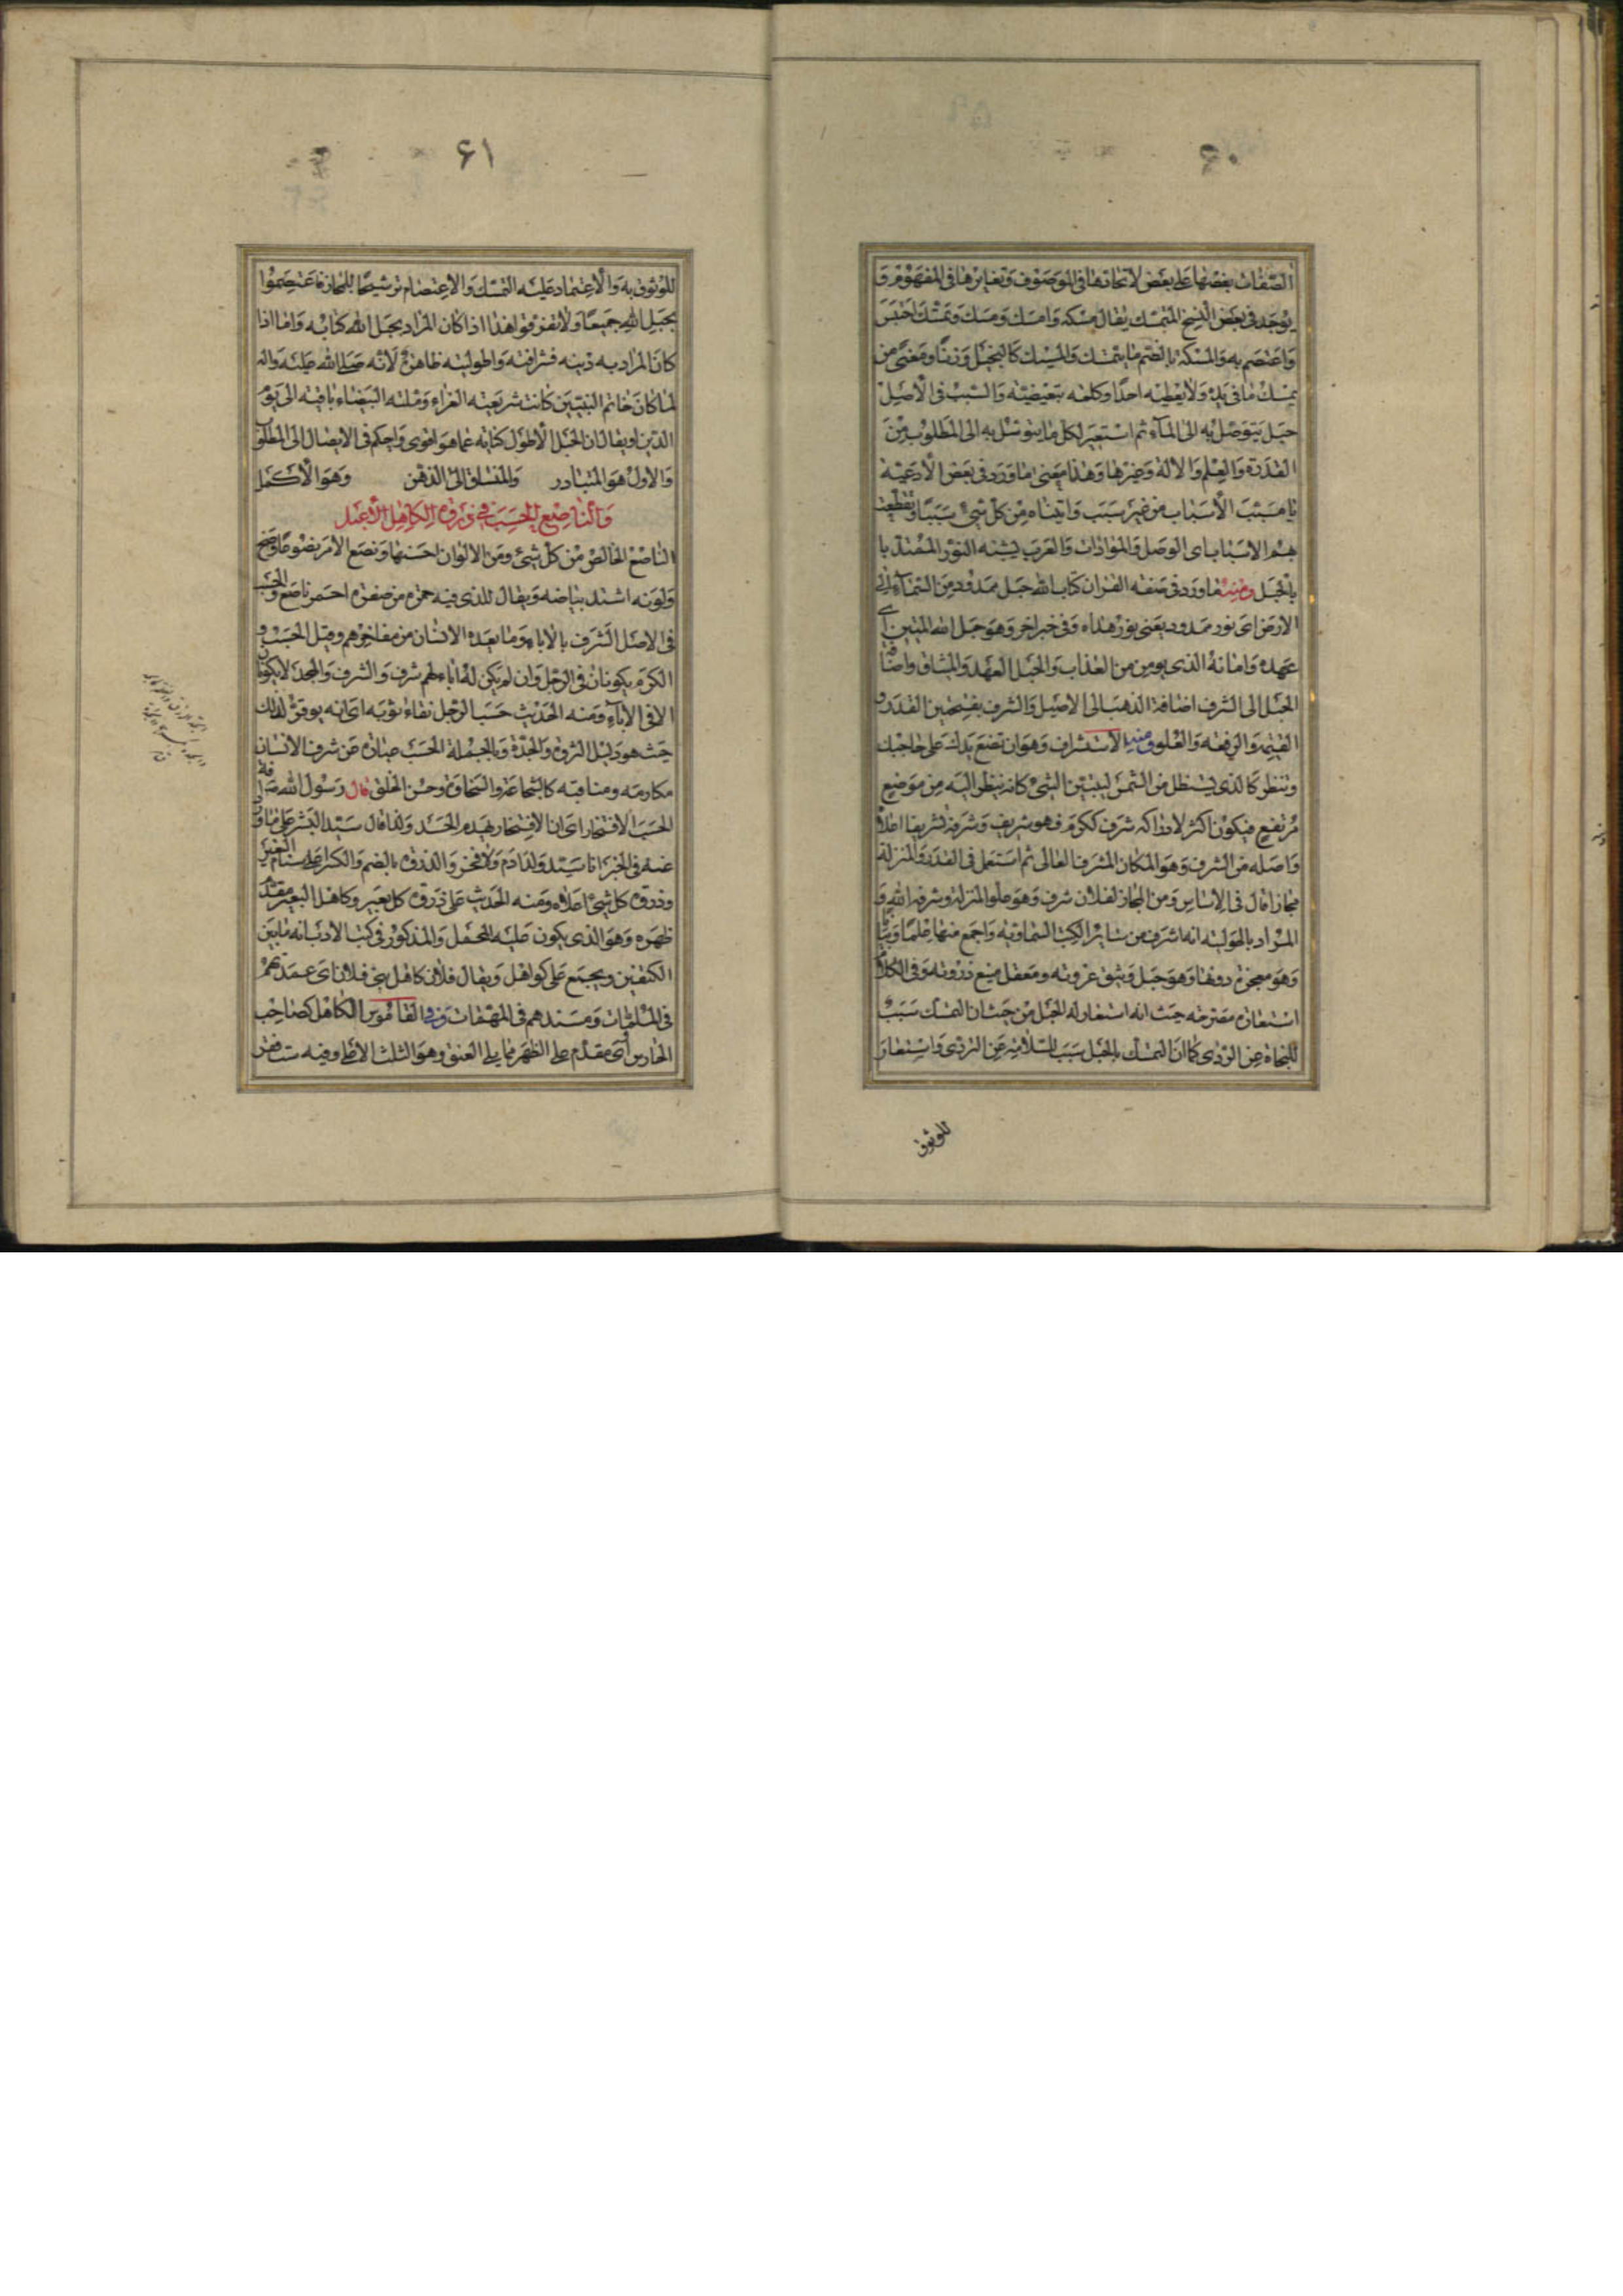 ۶۰
الصّفات بعضها على بعض لاتحادها فى الموصوف وتغايرها فى المفهوم و
يوجد فى بعض النسخ المتمسك يقال مسكه وامسك ومسك وتمسك احتبس
واعتصم به والمسكة بالضم ما يتمسك والمسيك كالبخيل وزنًا ومعنى من
يمسك ما فى يده ولا يعطيه احدًا وكلمه تبعيضيّة والسّبب فى الاصل
حبل يتوصل به الى المآء ثم استعير لكل ما يتوسّل به الى المطلوب من
القدرة والعلم والالة وغيرها وهذا معنى ما ورد فى بعض الادعية
يا مسبّب الأسباب من غير سبب واتيناه من كل شئ سببًا وتقطعت
بهم الاسباب اى الوصل والموادّات والعرب يشبّه النور الممتد با
بالحبل ومنه ما ورد فى صفة القران كتاب الله حبل ممدود من السّمآء الى
الارض اى نور ممدود يعنى نور هداه وفى خبر اخر وهو حبل الله المتين اى
عهده وامانه الذى يومن من العذاب والحبل العهد والميثاق واضافة
الحبل الى الشرف اضافة الذهب الى الاصيل والشرف بفتحتين القدر و
القيمة والرفعة والعلو ومنه الاستشراف وهو ان تضع يدك على حاجبك
وتنظر كالذى يستظل من الشمس ليتبيّن الشئ كانه ينظر اليه من موضع
مرتفع فيكون اكثر لادراكه شرف ككرم فهو شريف وشرفه تشريفا اعلاه
واصله من الشرف وهو المكان المشرف العالى ثم استعمل فى القدر والمنزلة
مجازا قال فى الاساس ومن المجاز لفلان شرف وهو علو المنزلة وشرفه الله و
المراد باطوليته انه اشرف من ساير الكتب السّماوية واجمع منها علمًا وبيانًا
وهو معجزة دونها وهو حبل وثيق عروته ومعقل منيع ذروته وفى الكلام
استعارة مصرحة حيث انه استعار له الحبل من حيث ان التمسك سبب
للنجاة عن الردى كما ان التمسك بالحبل سبب السّلامة عن التردى واستعار
للوثوق
۶۱
للوثوق به والاعتماد عليه التمسّك والاعتصام ترشيحًا للمجاز فاعتصموا
بحبل الله جميعًا ولا تفرقوا هذا اذا كان المراد بحبل الله كتابه واما اذا
كان المراد به دينه فشرافته واطوليته ظاهرة لانه صلى الله عليه واله
لما كان خاتم النبيّين كانت شريعته الغراء وملته البيضاء باقية الى يوم
الدّين او يقال ان الحبل الاطول كناية عما هو اقوى واحكم فى الايصال الى المطلوب
والاول هو المتبادر والمنساق الى الذهن وهو الاكمل
والناصع الحسب فى ذروة الكاهل الاعبل
الناصع الخالص من كل شئ ومن الالوان احسنها ونصع الامر نضوعًا وضح
ولونه اشتد بياضه ويقال للذى فيه حمرة من صفرة احمر ناصع والحسب
فى الاصل الشرف بالاباء وما يعده الانسان من مفاخرهم وقيل الحسب و
الكرم يكونان فى الرجل وان لم يكن له اباء لهم شرف والشرف والمجد لا يكونان
الا فى الابآء ومنه الحديث حسب الرجل نقاء ثوبيه اى انه يوقر لذلك
حيث هو دليل الثروة والجدة وبالجملة الحسب عبارة عن شرف الانسان
مكارمه ومناقبه كالشجاعة والسّخاوة وحسن الخلق قال رسول الله
الحسب الافتخار اى ان الافتخار يهدم الحسب ولذا قال سيّد البشر على ما روى
عنه فى الخبر انا سيّد ولد ادم ولا فخر والذروة بالضم والكسر اعلى سنام البعير
وذروة كل شئ اعلاه ومنه الحديث على ذروة كل بعير وكاهل البعير مقدّم
ظهره وهو الذى يكون عليه المحمل والمذكور فى كتب الادب انه ما بين
الكتفين ويجمع على كواهل ويقال فلان كاهل بنى فلان اى عمدتهم
فى الملمّات ومسندهم فى المهمّات وفى القاموس الكاهل كصاحب
الحارس اى مقدم على الظهر مما يلى العنق وهو الثلث الاعلى وفيه ست فقر